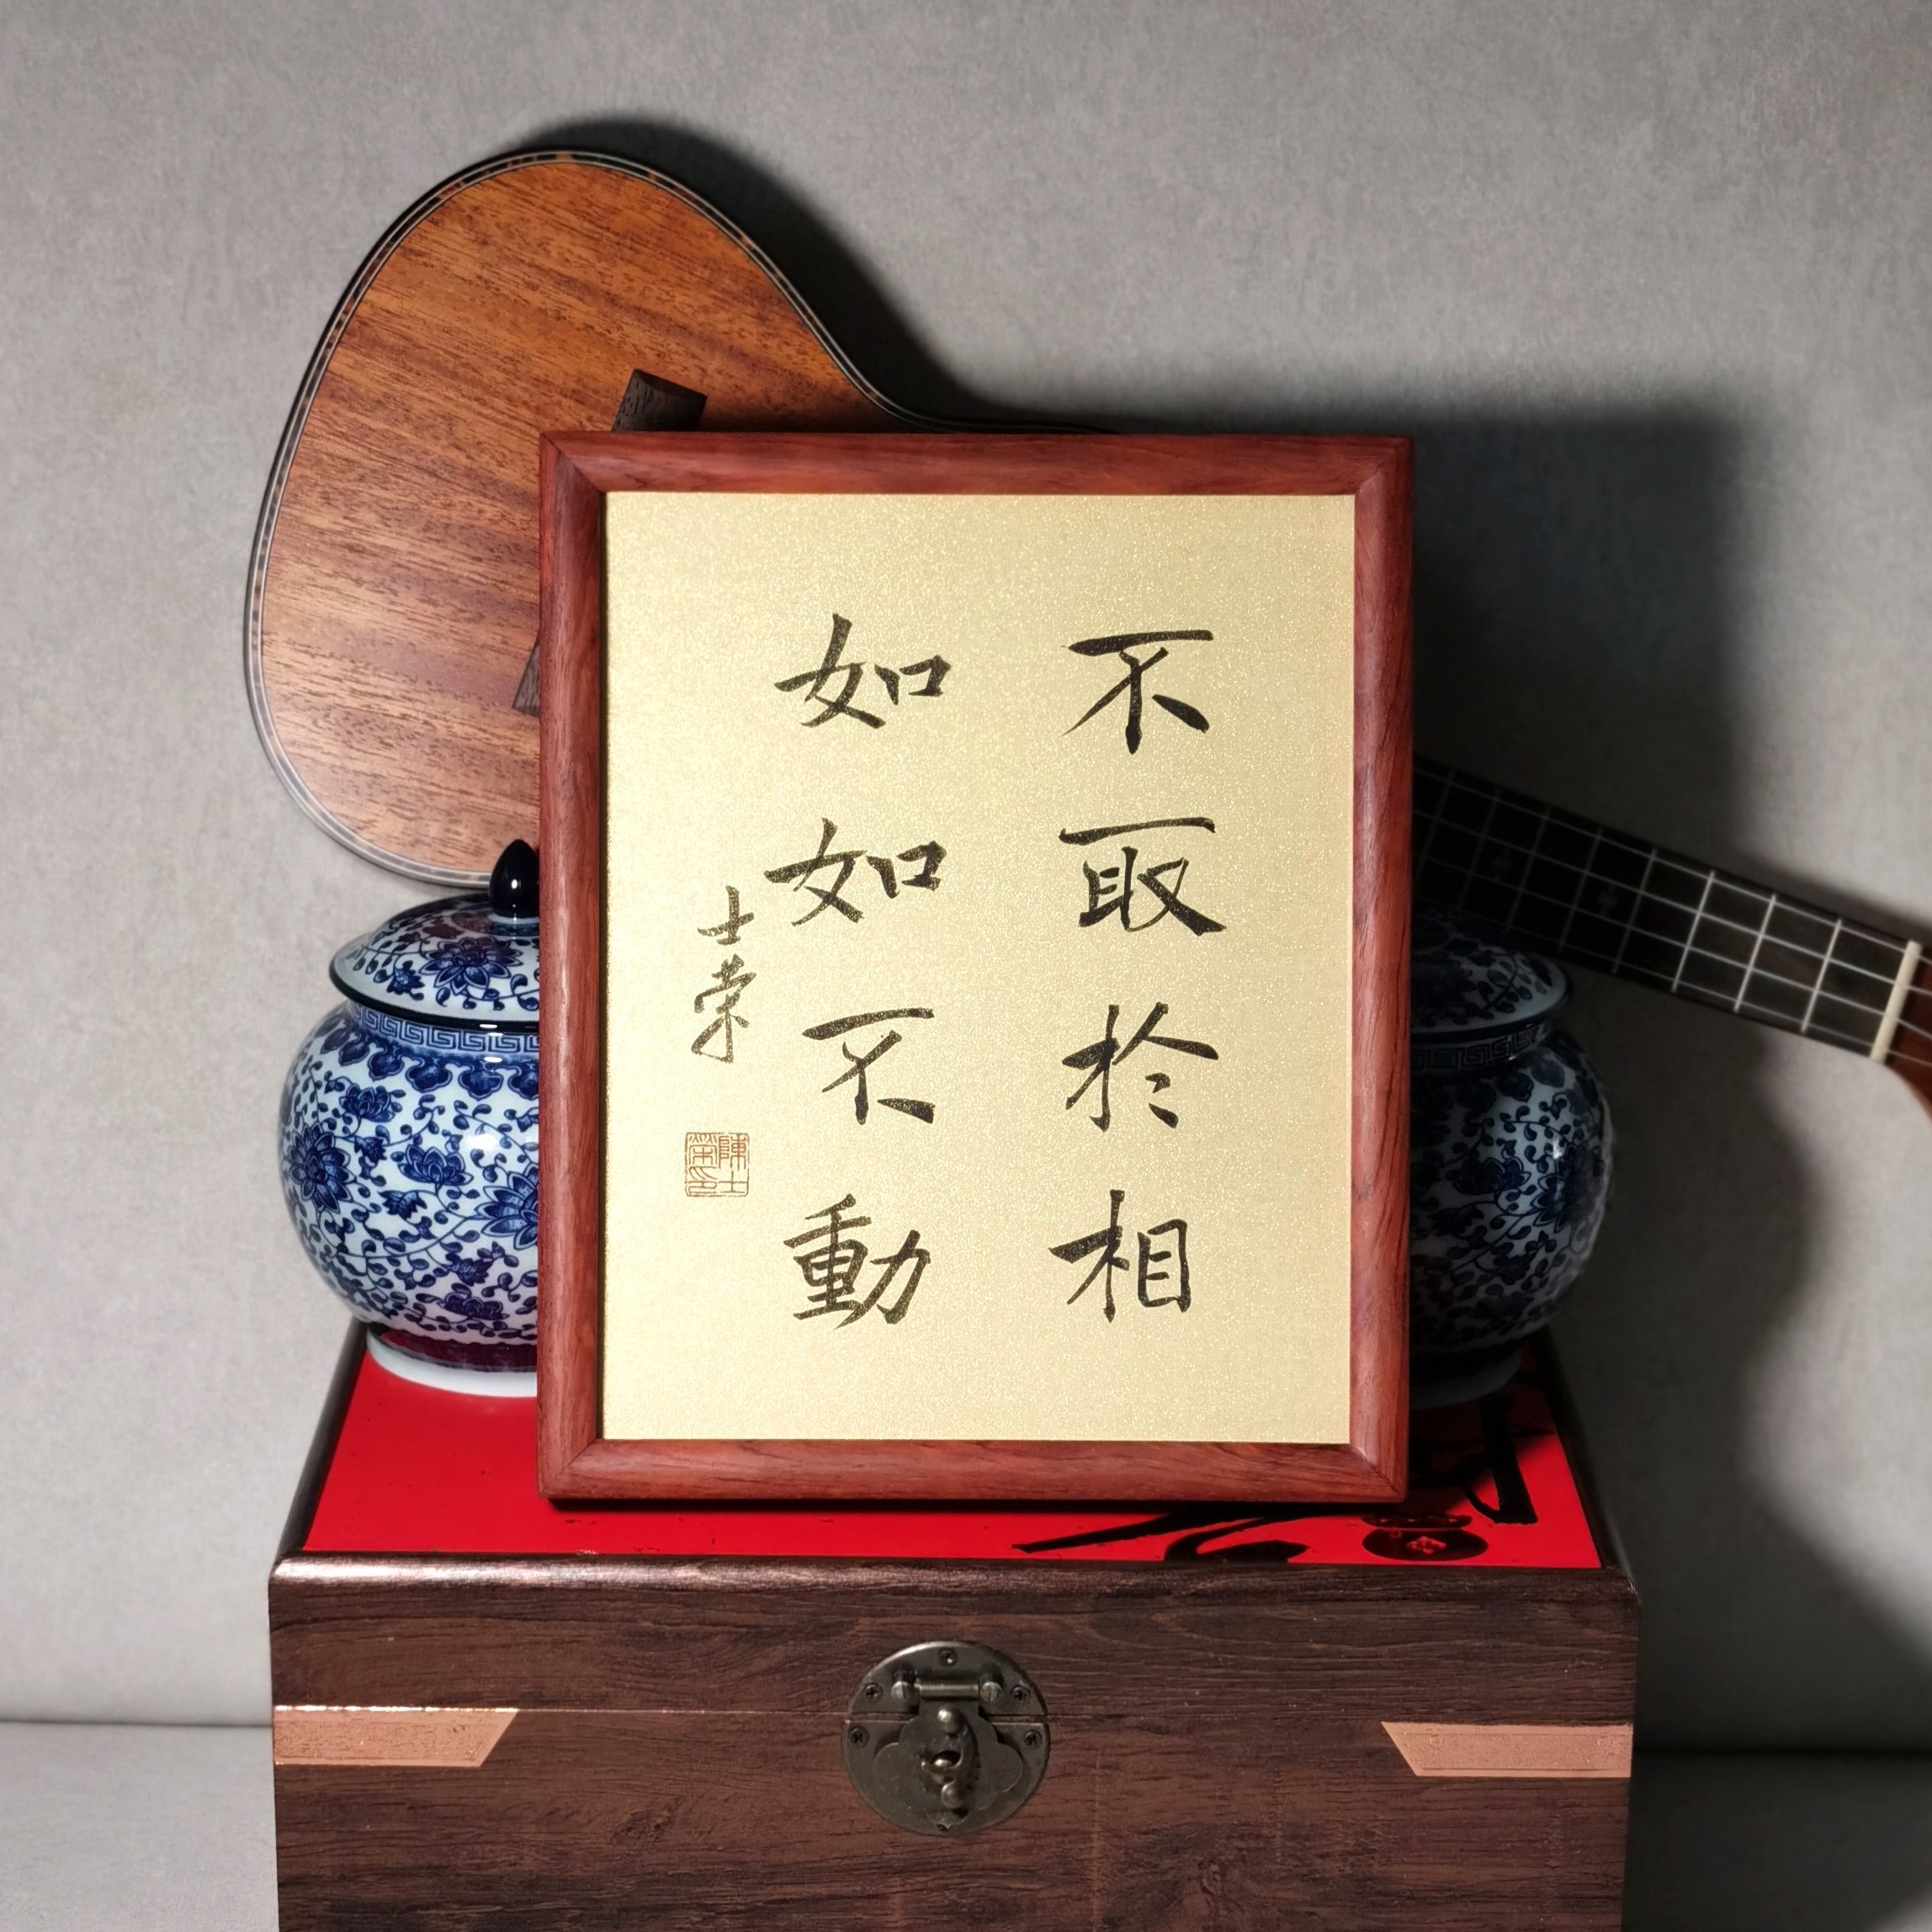 不取於相
如如不動
士荣
陳士榮印